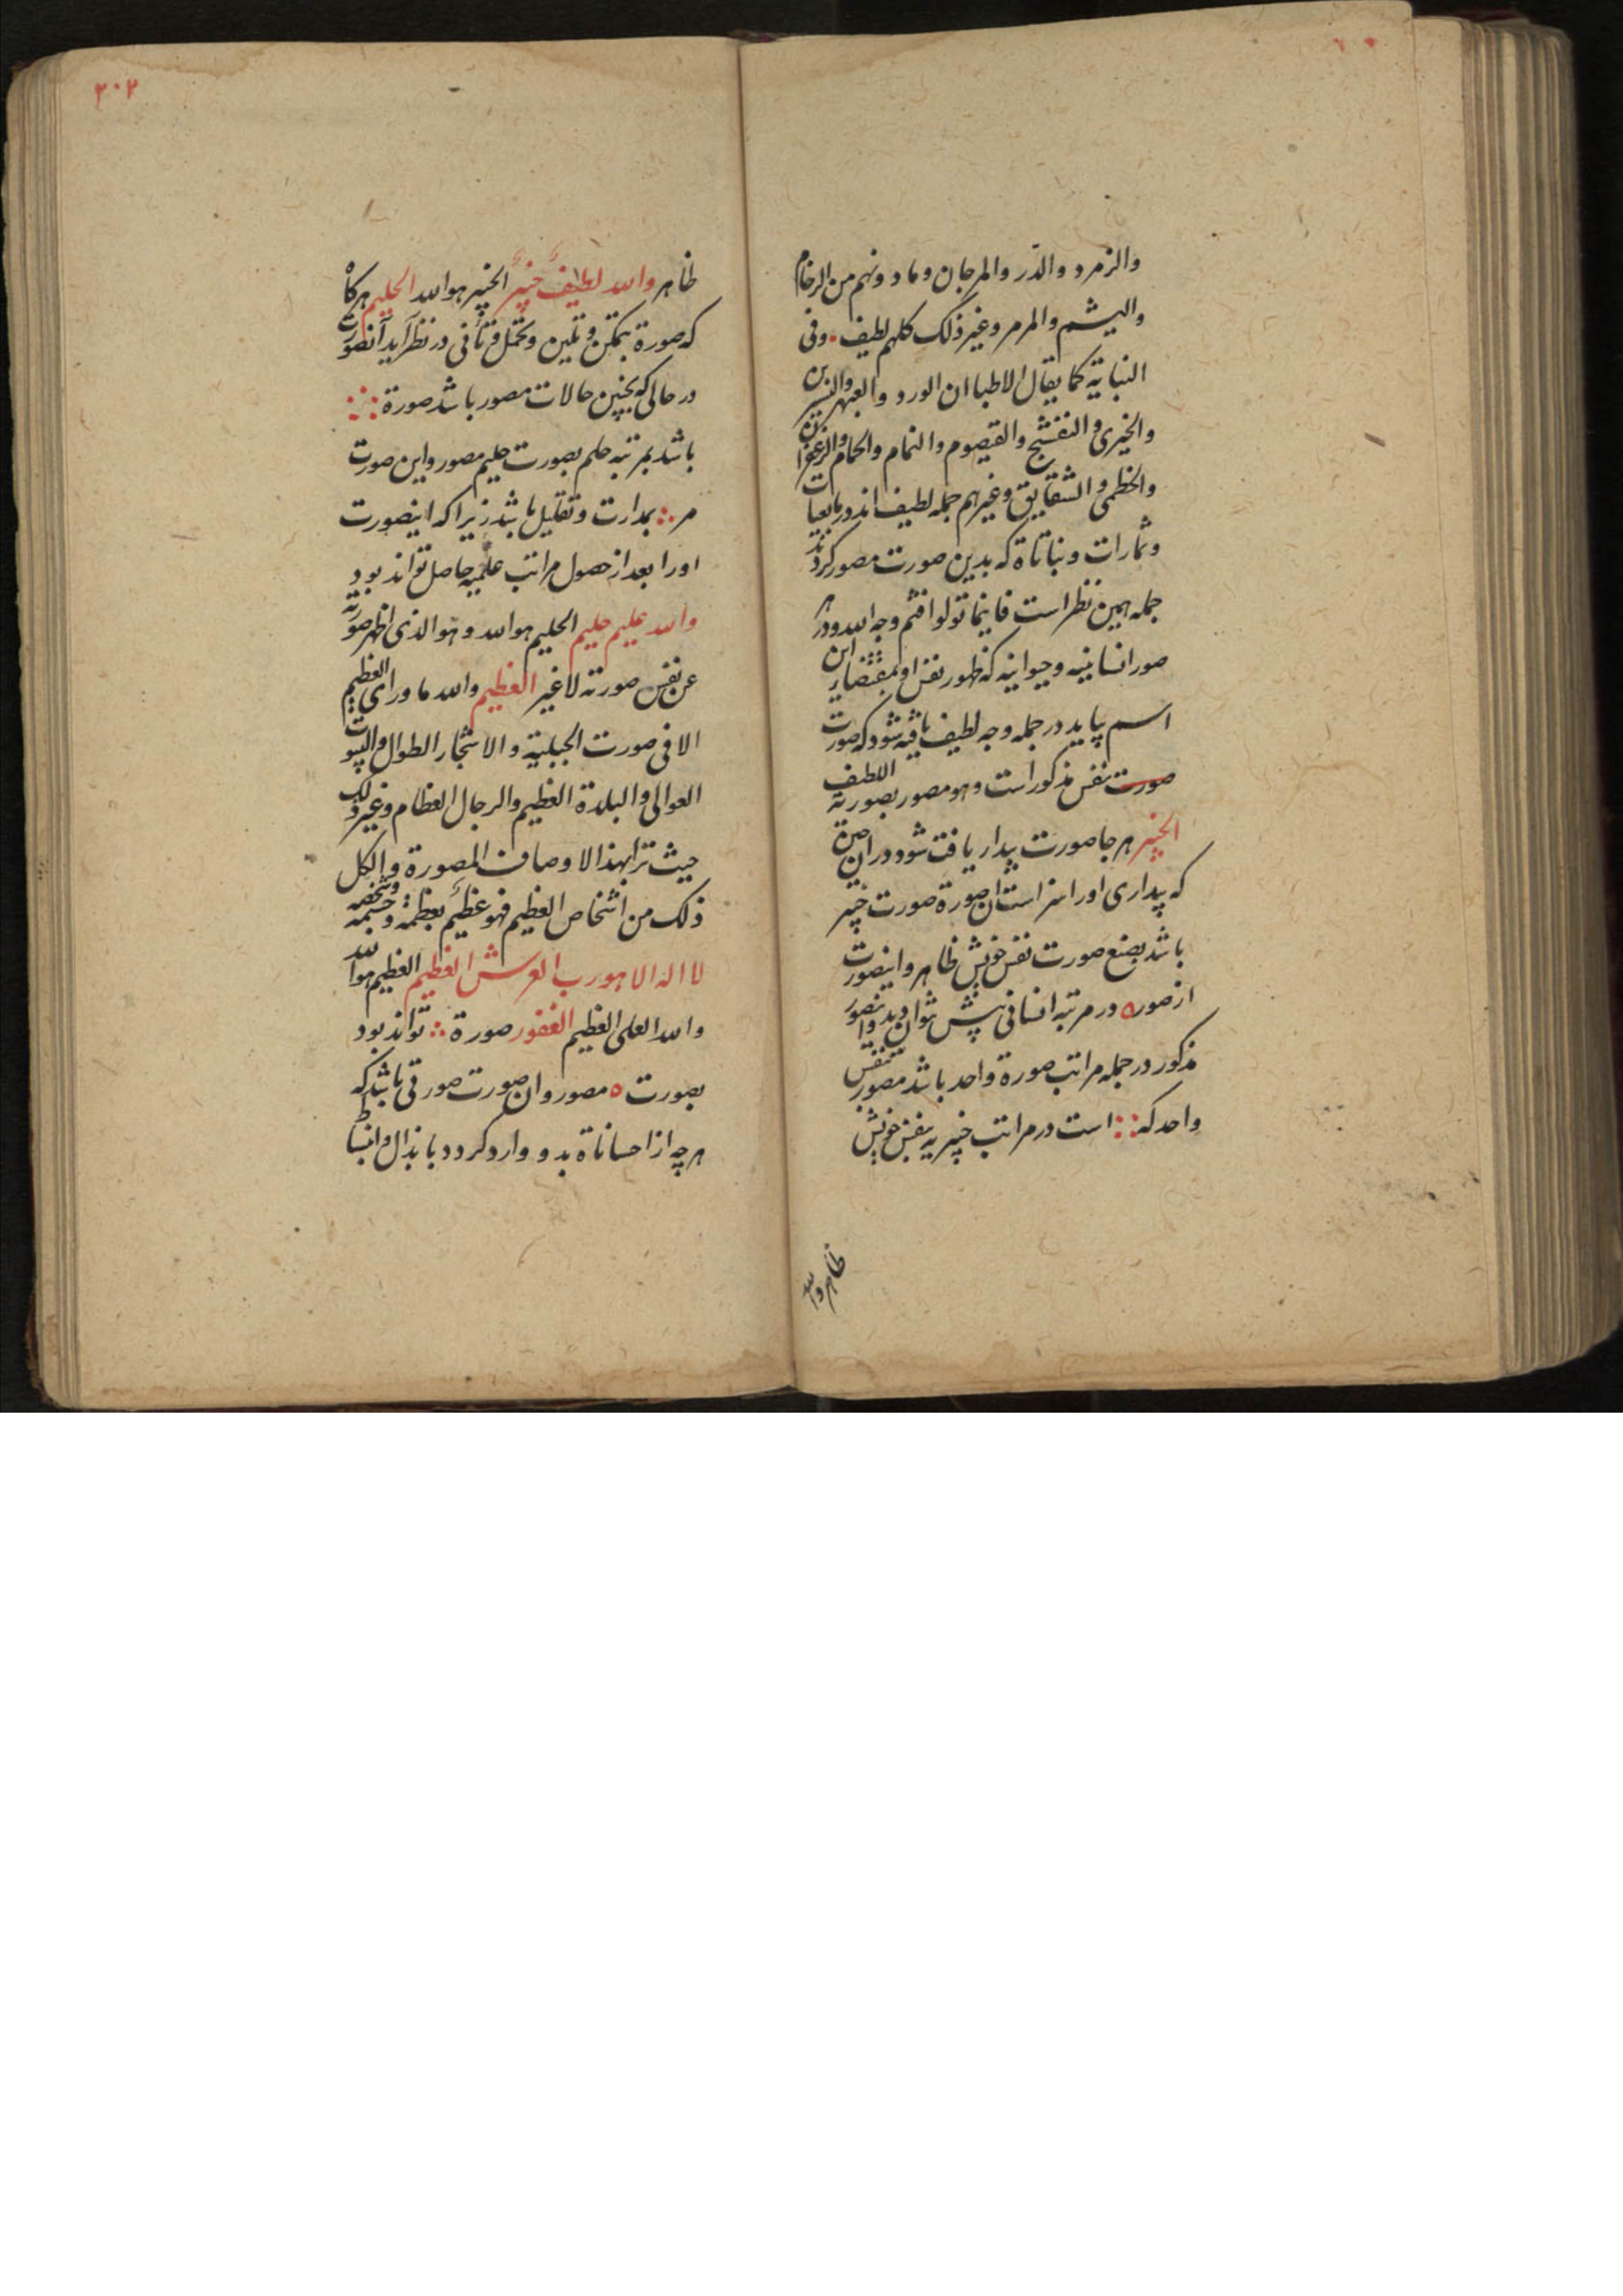 والزمرد والدّر والمرجان وما دونهم من الرخام
والیشم والمرمر وغیر ذلک کلهم لطیف وفی
النباتیة کما یقال الاطبا ان الورد والعبهر والنسرین
والخیری والنفشج والقیصوم والنمام والحمام والزعفران
والخطمی والشقایق وغیرهم جمله لطیف اند
وثمارات ونباتاة که بدین صورت مصور کردند
جمله بهمین نظر است فاینما تولوا فثم وجه الله ودر هر
صور انسانیه وحیوانیه که ظهور نفس او بمقتضای این
اسم پاید در جمله وجه لطیف یافته شود که صورت
صورت نفس مذکور است وهو مصور بصورته اللطیف
الخبیر هر جا صورت پدار یافت شود در ان صورة
که پیداری اورا سزاست ان صورة صورت خبیر
باشد بصنع صورت نفس خویش ظاهر واینصورت
از صور ه در مرتبه انسانی پیش توان دید واینصور
مذکور در جمله مراتب صورة واحد باشد مصور بنفس
واحد که است در مراتب خبیریه بنفس خویش
ظاهر والله
۲۰۲
ظاهر والله لطیفٌ خبیرٌ الخبیر هو الله الحلیم هرکاه
که صورة بتمکن وتلین وتحمل وتأنی در نظر آید آنصورت
در حالی که بچنین حالات مصور باشد صورة
باشد بمرتبه حلم بصورت حلیم مصور واین صورت
مر بمدارت وتقلیل باشد زیرا که اینصورت
اورا بعد از حصول مراتب علمیه حاصل تواند بود
والله علیم حلیم الحلیم هو الله وهو الذی اظهر صورته
عن نفس صورته لا غیر العظیم والله ما ورای العظیم
الا فی صورت الجبلیة والاشجار الطوال والبیوت
العوالی والبلدة العظیم والرجال العظام وغیر ذلک
حیث ترا بهذا الاوصاف المصورة والکل
ذلک من اشخاص العظیم فهو عظیمٌ بعظمة وجسمه وشخصه
لا اله الا هو رب العرش العظیم العظیم هو الله
والله العلی العظیم الغفور صورة تواند بود
بصورت ه مصور وان صورت صورتی باشد که
هر چه از احساناة بدو وارد کردد باندال وانبساط